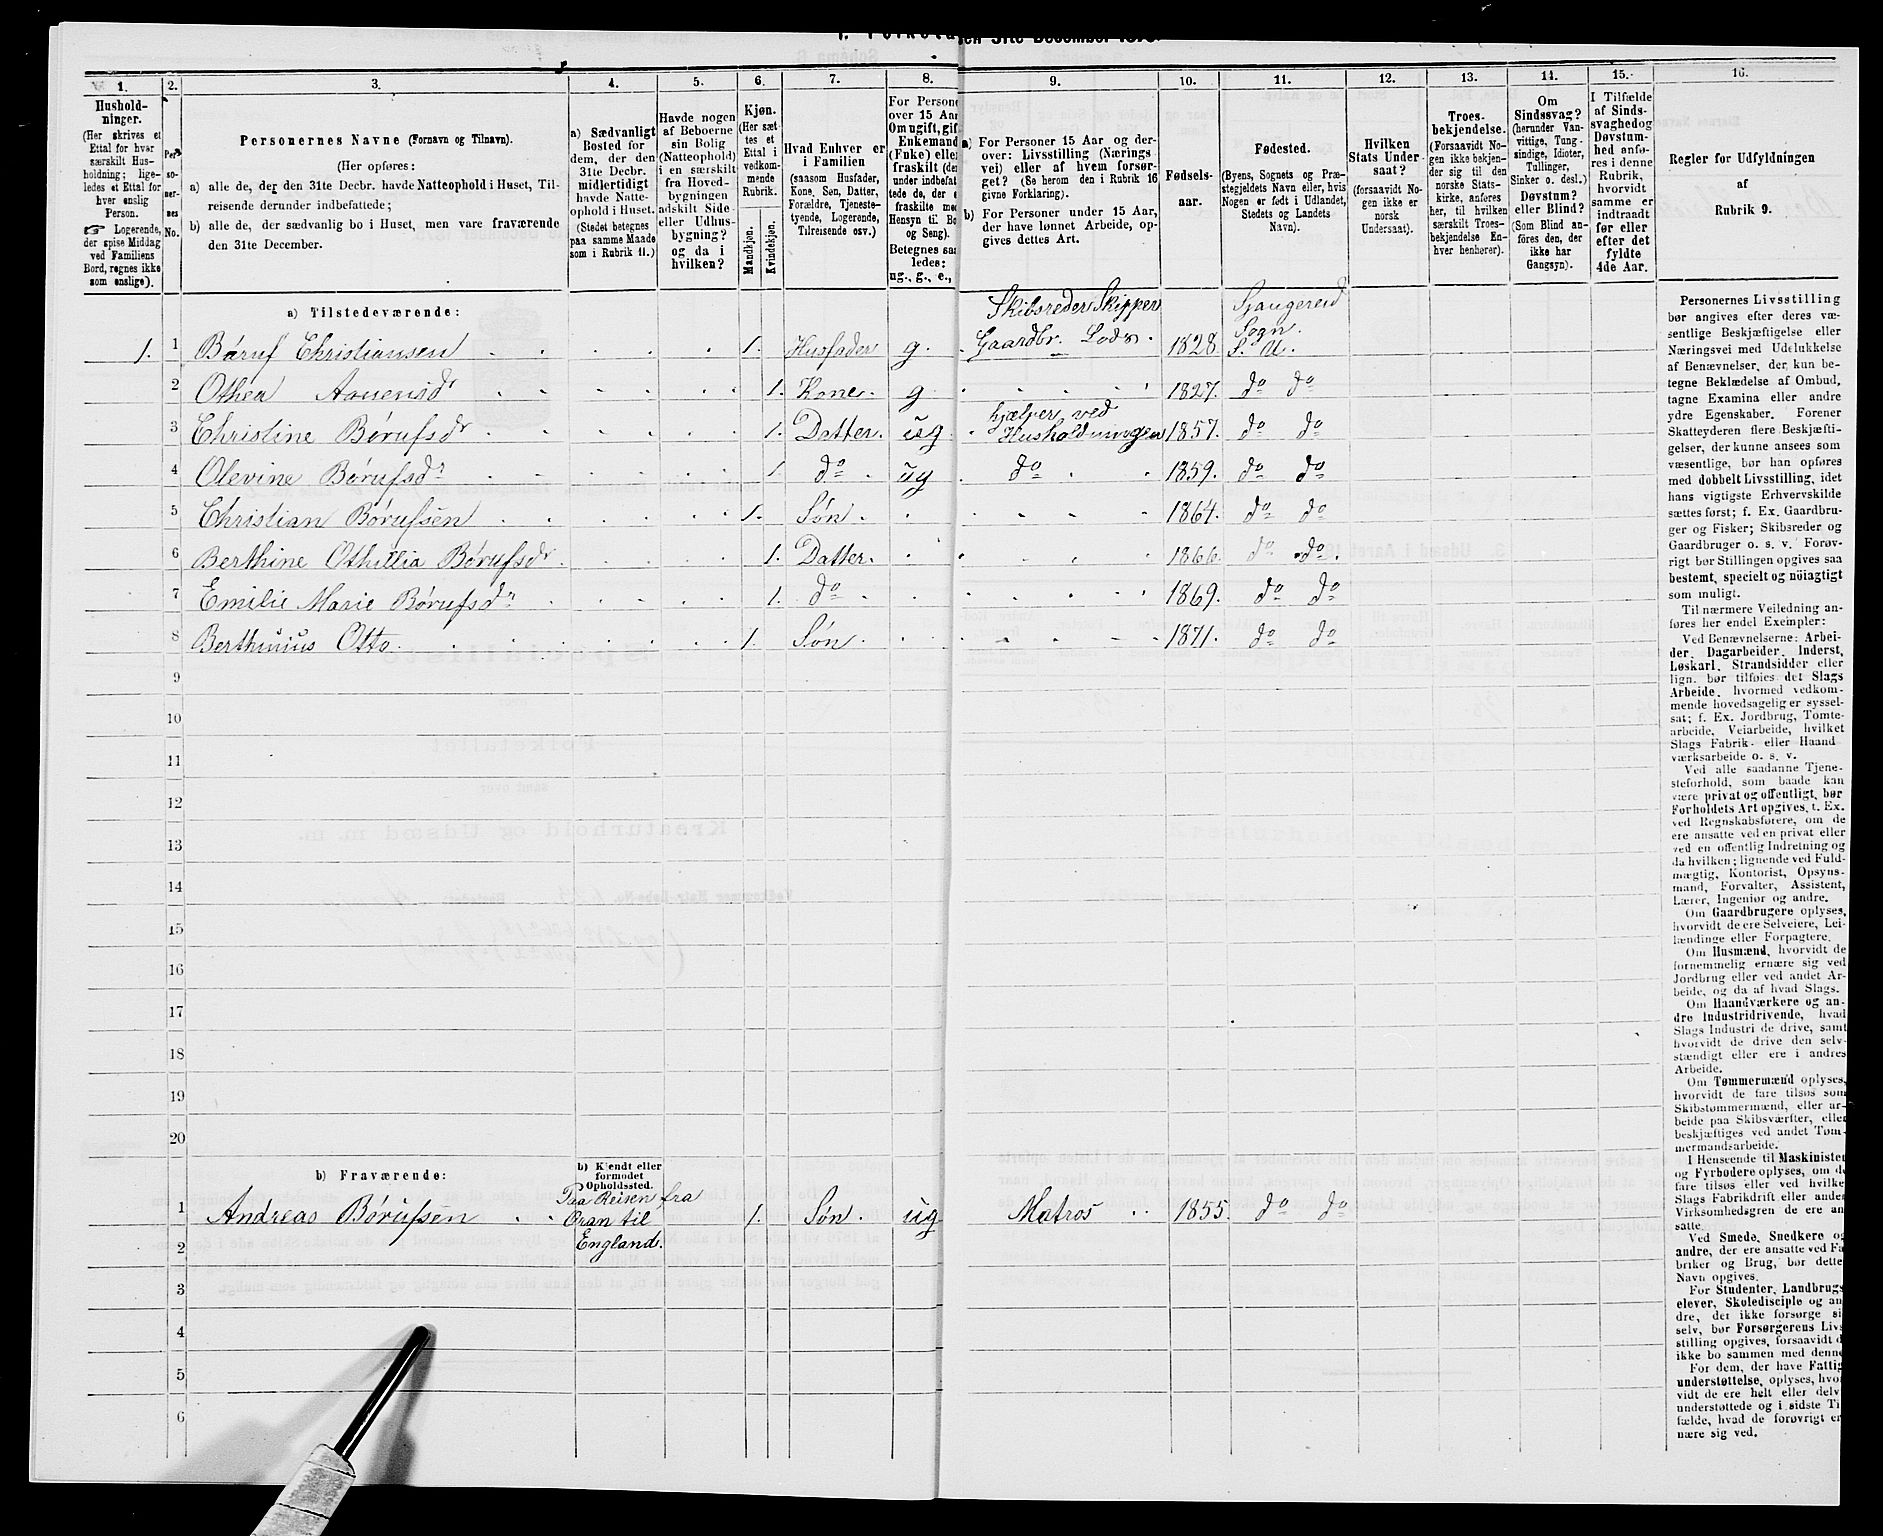 1. Folketal
en 31te December 187
1.
2.
3.
4.
5.
6.
7.
8.
9.
10.
11.
12.
13.
14.
15.
16.
Hushold-
ninger.
(Her skrives et
Ettal for hver
særskilt Hus-
holdning; lige-
ledes et Ettal for
hver enslig
Person.
☞ Logerende,
der spise Middag
ved Familiens
Bord, regnes ikke
som enslige).
Per-
so-
ner-
nes
No.
Personernes Navne (Fornavn og Tilnavn).
(Her opføres:
a) alle de, der den 31te Decbr. havde Natteophold i Huset, Til-
reisende derunder indbefattede;
b) alle de, der sædvanlig bo i Huset, men vare fraværende
den 31te December.
a) Sædvanligt
Bosted for
dem, der den
31te Decbr.
midlertidigt
havde Natte-
ophold i Huset.
(Stedet betegnes
paa samme Maade
som i Rubrik 11.)
Havde nogen
af Beboerne
sin Bolig
(Natteophold)
i en særskilt
fra Hoved-
bygningen
adskilt Side-
eller Udhus-
bygning?
og da i
hvilken?
Kjøn.
(Her sæt-
tes et
Ettal i
vedkom-
mende
Rubrik.
Mandkjøn.
Kvindekjøn.
Hvad Enhver er
i Familien
(saasom Husfader,
Kone, Søn, Datter,
Forældre, Tjeneste-
tyende, Logerende,
Tilreisende osv.)
For Persone
over 15 Aar
Om ugift, gif
Enkemand
(Enke) elle
fraskilt (der
under indbefat
tede de, der e
fraskilte med
Hensyn til Bo
og Seng).
Betegnes saa
ledes:
ug., g., e.,
a) For Personer 15 Aar og der-
over: Livsstilling (Nærings
vei) eller af hvem forsør-
get? (Se herom den i Rubrik 16
givne Forklaring).
b) For Personer under 15 Aar,
der have lønnet Arbeide, op-
gives dettes Art.
Fødsels-
aar.
Fødested.
(Byens, Sognets og Præ-
stegjeldets Navn eller, hvis
Nogen er født i Udlandet,
Stedets og Landets
Navn).
Hvilken
Stats Under-
saat?
(forsaavidt No-
gen ikke er
norsk
Undersaat).
Troes-
bekjendelse.
(Forsaavidt No-
gen ikke bekjen-
der sig til den
norske Stats-
kirke, anføres
her, til hvilken
særskilt Troes-
bekjendelse En-
hver henhører).
Om
Sindssvag?
(herunder Van-
vittige, Tung-
sindige, Idioter,
Tullinger,
Sinker o. desl.)
Døvstum?
eller Blind?
(Som Blind an-
føres den, der
ikke har
Gangsyn).
I Tilfælde
af Sinds-
svaghed og
Døvstum-
hed anfø-
res i denne
Rubrik,
hvorvidt
samme er
indtraadt
før eller
efter det
fyldte
4de Aar.
Regler for Udfyldningen
af
Rubrik 9.
a) Tilstedeværende:
1. 1 Børuf Christiansen 1. Husfader g. Skibsreder Skipper Gaardbr. Lods. 1828. Sjaugereid Sogn. S. U.
2 Othea 1. Kone. g 1827. do do
3 Christine Børufsdr 1. Datter. ug hjælper ved Husholdningen 1857. do do
4 Olevine Børufsdr 1. do ug do 1859. do do
5 Christian Børufsen 1. Søn 1864. do do
6 Berthine Othillia Børufsdr 1. Datter. 1866. do do.
7 Emilie Marie Børufsdr 1. do 1869. do do
8 Berthinius Otto 1. Søn 1871. do do
9
10
11
12
13
14
15
16
17
18
19
20
b) Fraværende:
b) Kjendt eller
formodet
Opholdssted.
1 Andreas Børufsen Paa Reisen fra Oran til England. 1. Søn. ug Matros 1855. do do
2
3
4
5
6
Personernes Livsstilling
bør angives efter deres væ-
sentlige Beskjæftigelse eller
Næringsvei med Udelukkelse
af Benævnelser, der kun be-
tegne Beklædelse af Ombud,
tagne Examina eller andre
ydre Egenskaber. Forener
Skatteyderen flere Beskjæfti-
gelser, der kunne ansees som
væsentlige, bør han opføres
med dobbelt Livsstilling, idet
hans vigtigste Erhvervskilde
sættes først; f. Ex. Gaardbru-
ger og Fisker; Skibsreder og
Gaardbruger o. s. v. Forøv-
rigt bør Stillingen opgives saa
bestemt, specielt og nöiagtigt
som muligt.
Til nærmere Veiledning an-
føres her endel Exempler:
Ved Benævnelserne: Arbei-
der, Dagarbeider, Inderst,
Løskarl, Strandsidder eller
lign. bør tilføies det Slags
Arbeide, hvormed vedkom-
mende hovedsagelig er syssel-
sat; f. Ex. Jordbrug, Tomte-
arbeide, Veiarbeide, hvilket
Slags Fabrik- eller Haand
værksarbeide o. s. v.
Ved alle saadanne Tjene-
steforhold, som baade kan
være privat og offentligt, bør
Forholdets Art opgives, t. Ex.
ved Regnskabsførere, om de
ere ansatte ved en privat eller
ved en offentlig Indretning og
da hvilken; lignende ved Fuld-
mægtig, Kontorist, Opsyns-
mand, Forvalter, Assistent,
Lærer, Ingeniør og andre.
Om Gaardbrugere oplyses,
hvorvidt de ere Selveiere, Lei-
lændinge eller Forpagtere.
Om Husmænd, hvorvidt de
fornemmelig ernære sig ved
Jordbrug eller ved andet Ar-
beide, og da af hvad Slags.
Om Haandværkere og an-
dre Industridrivende, hvad
Slags Industri de drive, samt
hvorvidt de drive den selv-
stændigt eller ere i andres
Arbeide.
Om Tømmermænd oplyses,
hvorvidt de fare tilsøs som
Skibstømmermænd, eller ar-
beide paa Skibsværfter, eller
beskjæftiges ved andet Tøm-
mermandsarbeide.
I Henseende til Maskinister
og Fyrbødere oplyses, om de
fare tilsøs eller ved hvilke
Slags Fabrikdrift eller anden
Virksomhedsgren de ere an
satte.
Ved Smede, Snedkere og
andre, der ere ansatte ved Fa
briker og Brug, bør dette
Navn opgives.
For Studenter, Landbrugs
elever, Skoledisciple og an
dre, der ikke forsørge si
selv, bør Forsørgerens Livs
stilling opgives, forsaavidt d
ikke bo sammen med denne
For dem, der have Fattig
understøttelse, oplyses, hvo
vidt de ere helt eller delv
understøttede og i sidste Ti
fælde, hvad de forøvrigt er
nære sig ved.